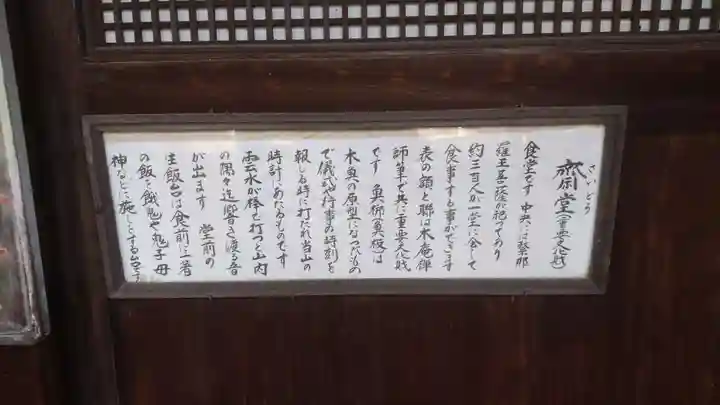 さいどう
斎堂(重要文化財)
食堂です 中央には緊那
羅王菩薩が祀ってあり
約三百人が一堂に会して
食事する事ができます
表の額と聯は木庵禅
師筆で共に重要文化財
です 魚梆(魚板)は
木魚の原型になったもの
で儀式や行事の時刻を
報じる時に打たれ当山の
時計にあたるものです
雲水が棒で打つと山内
の隅々迄響き渡る音
が出ます 堂前の
生飯台は食前に一著
の飯を餓鬼や鬼子母
神などに施しをする台です